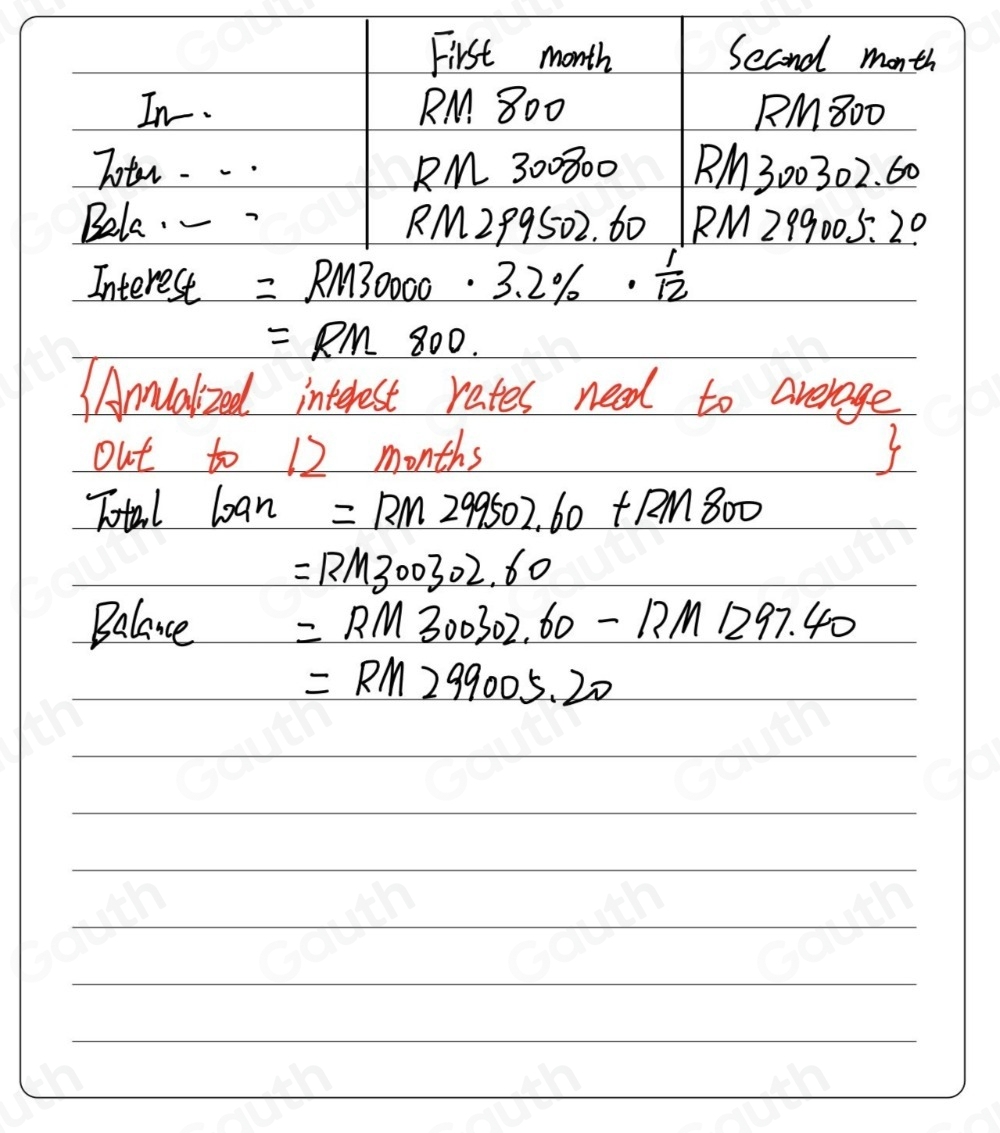 First month Second month
In. RM 800 RM 800
RM 300800 RM 300302.60
Bala. RM 299502.60 RM 299005.20
Interest = RM30000 · 3.2% · 1/12
= RM 800.
{Annualized interest rates need to average
out to 12 months }
Total loan = RM 299502.60 + RM 800
= RM300302.60
Balance = RM 300302.60 - RM 1297.40
= RM 299005.20
Gauth